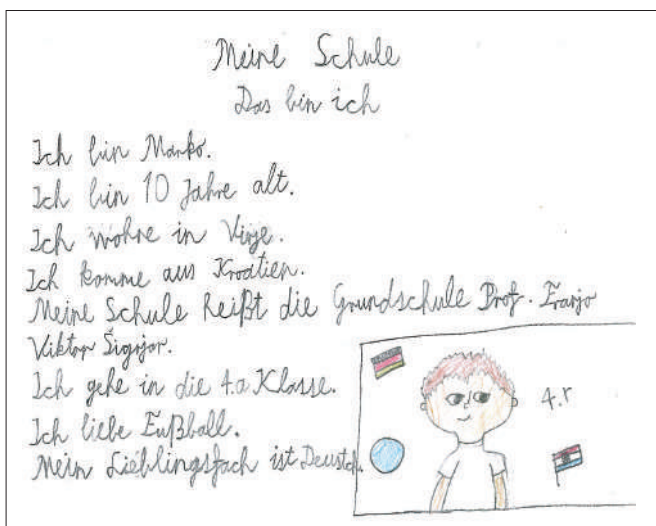 Meine Schule
Das bin ich
Ich bin Marko.
Ich bin 10 Jahre alt.
Ich wohne in Virje.
Ich komme aus Kroatien.
Meine Schule heißt die Grundschule Prof. Franjo
Viktor Šignjar.
Ich gehe in die 4.a Klasse.
Ich liebe Fußball.
Mein Lieblingsfach ist Deustch.
4.r